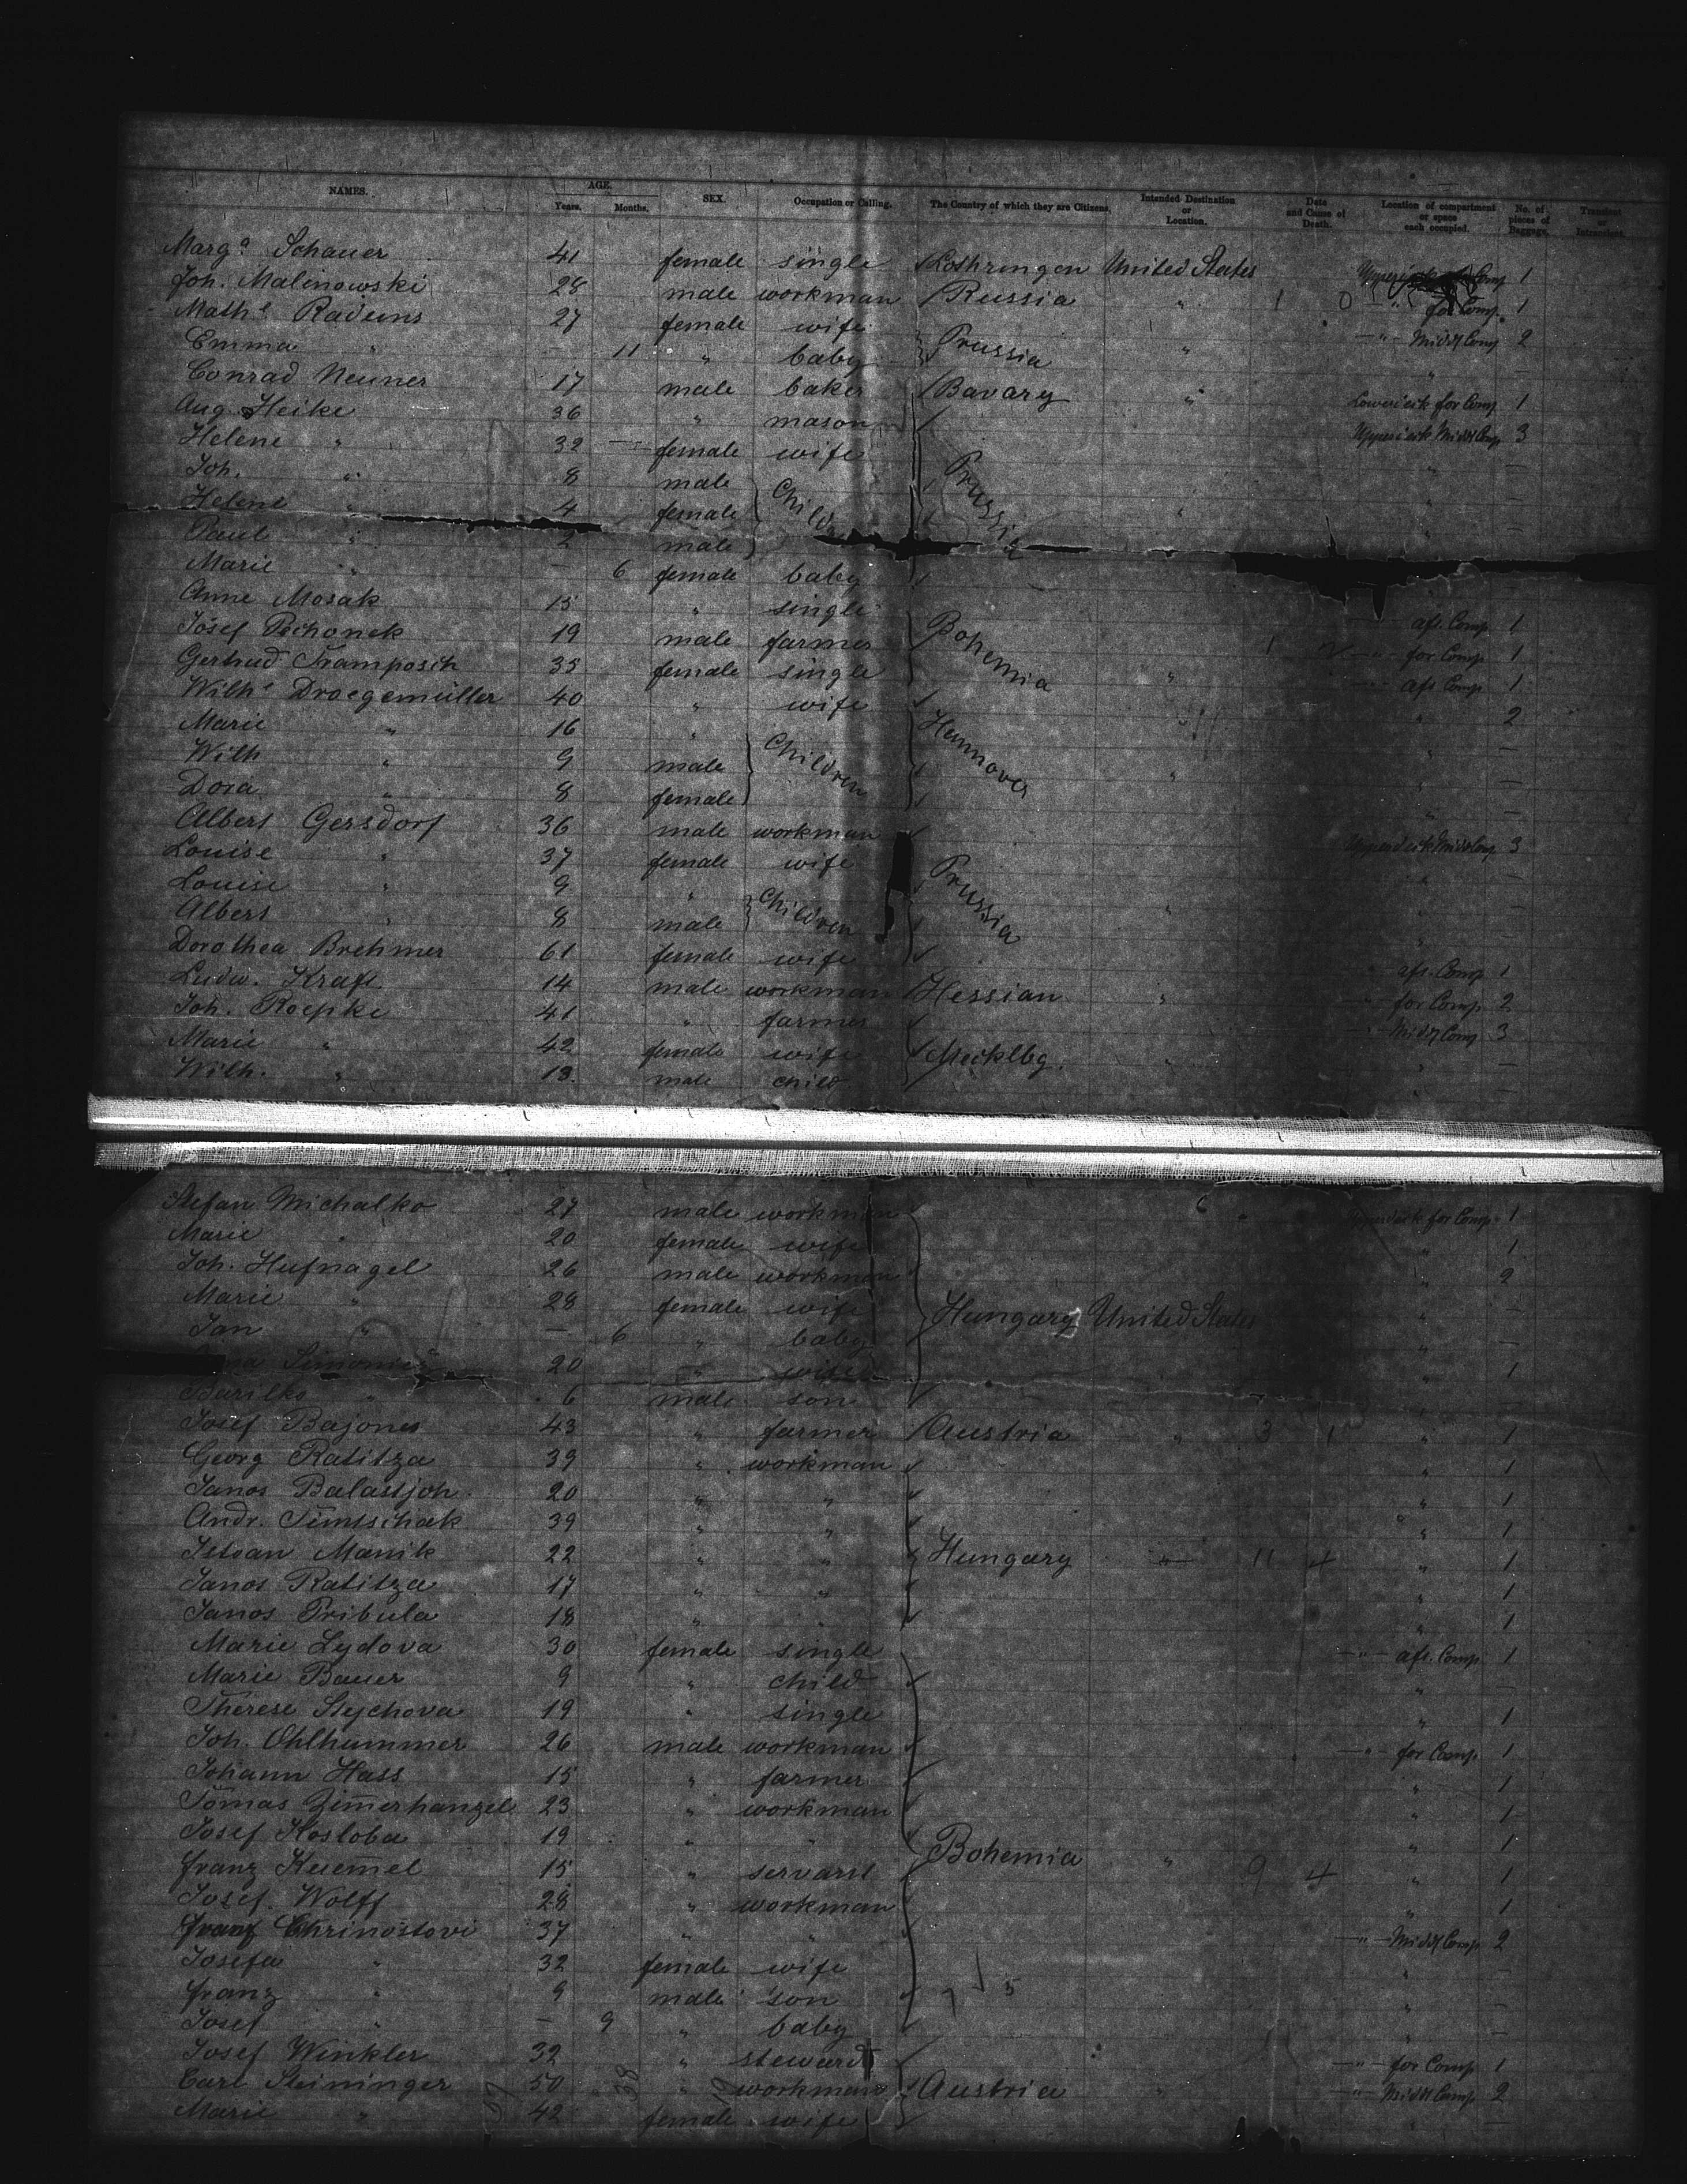 NAMES. AGE. Years. Months. SEX. Occupation or Calling. The Country of which they are Citizens. Intended Destination or Location. Date and Cause of Death. Location of compartment or space each occupied. No. of pieces of Baggage. Transient or Intransient.
Marg.a Schauer 41 female single Lothringen United States Comp 1
Joh. Malinowski 28 male workman Russia " 1 0 " for Comp. 1
Math.e Radeins 27 female wife Prussia " — " — Midd Comp 2
Emma " — 11 " baby " —
Conrad Neuner 17 male baker Bavary " Lowerdeck for Comp. 1
Aug. Heike 36 " mason Upperdeck Midd Comp 3
Helene " 32 female wife " —
Joh. " 8 male Children Prussia " —
Helene " 4 female " —
Paul " 2 male
Marie " — 6 female baby
Anne Mosak 15 " single Bohemia aft. Comp. 1
Josef Pichonek 19 male farmer 1 " for Comp 1
Gertrud Tramposch 35 female single " aft Comp 1
Wilh.e Droegemüller 40 " wife Hannover " 2
Marie " 16 " Children " —
Wilh " 9 male " " —
Dora " 8 female " —
Albert Gersdorf 36 male workman Prussia Upperdeck Midd Comp 3
Louise " 37 female wife " —
Louise " 9 " Children " " —
Albert " 8 male " —
Dorothea Brehmer 61 female wife " aft. Comp 1
Ludw. Kraft 14 male workman Hessian " " for Comp 2
Joh. Roepke 41 " farmer " Midd Comp 3
Marie " 42 female wife Mecklbg. " " —
Wilh. " 13 male child " —
Stefan Michalko 27 male workman Upperdeck for Comp 1
Marie " 20 female wife " 1
Joh. Hufnagel 26 male workman " 2
Marie " 28 female wife Hungary United States " —
Jan " — 6 " baby " —
20 " wife " 1
Barilko " 6 male son " —
Josef Bajones 43 " farmer Austria " 3 1 " 1
Georg Ratitza 39 " workman " 1
Janos Balastjoh 20 " " " 1
Andr. Timtschak 39 " " " 1
Istvan Manik 22 " " Hungary " 11 4 " 1
Janos Ratitza 17 " " " 1
Janos Pribula 18 " " " 1
Marie Lydova 30 female single — " — aft. Comp. 1
Marie Bauer 9 " child " —
Therese Stychova 19 " single " 1
Joh. Ohlhummer 26 male workman — " — for Comp. 1
Johann Hass 15 " farmer " 1
Tomas Zim̄erhanzel 23 " workman " 1
Josef Kosloba 19 " " Bohemia " " 1
Franz Kuem̄el 15 " servant 9 4 " 1
Josef Wolff 28 " workman " 1
Franz Chrinostovi 37 " " — " — Midd Comp 2
Josefa " 32 female wife " —
Franz " 9 male son " —
Josef " — 9 " baby " —
Josef Winkler 32 " steward — " — for Comp 1
Carl Steininger 50 " workman Austria " — " — Midd Comp 2
Marie " 42 female wife " —